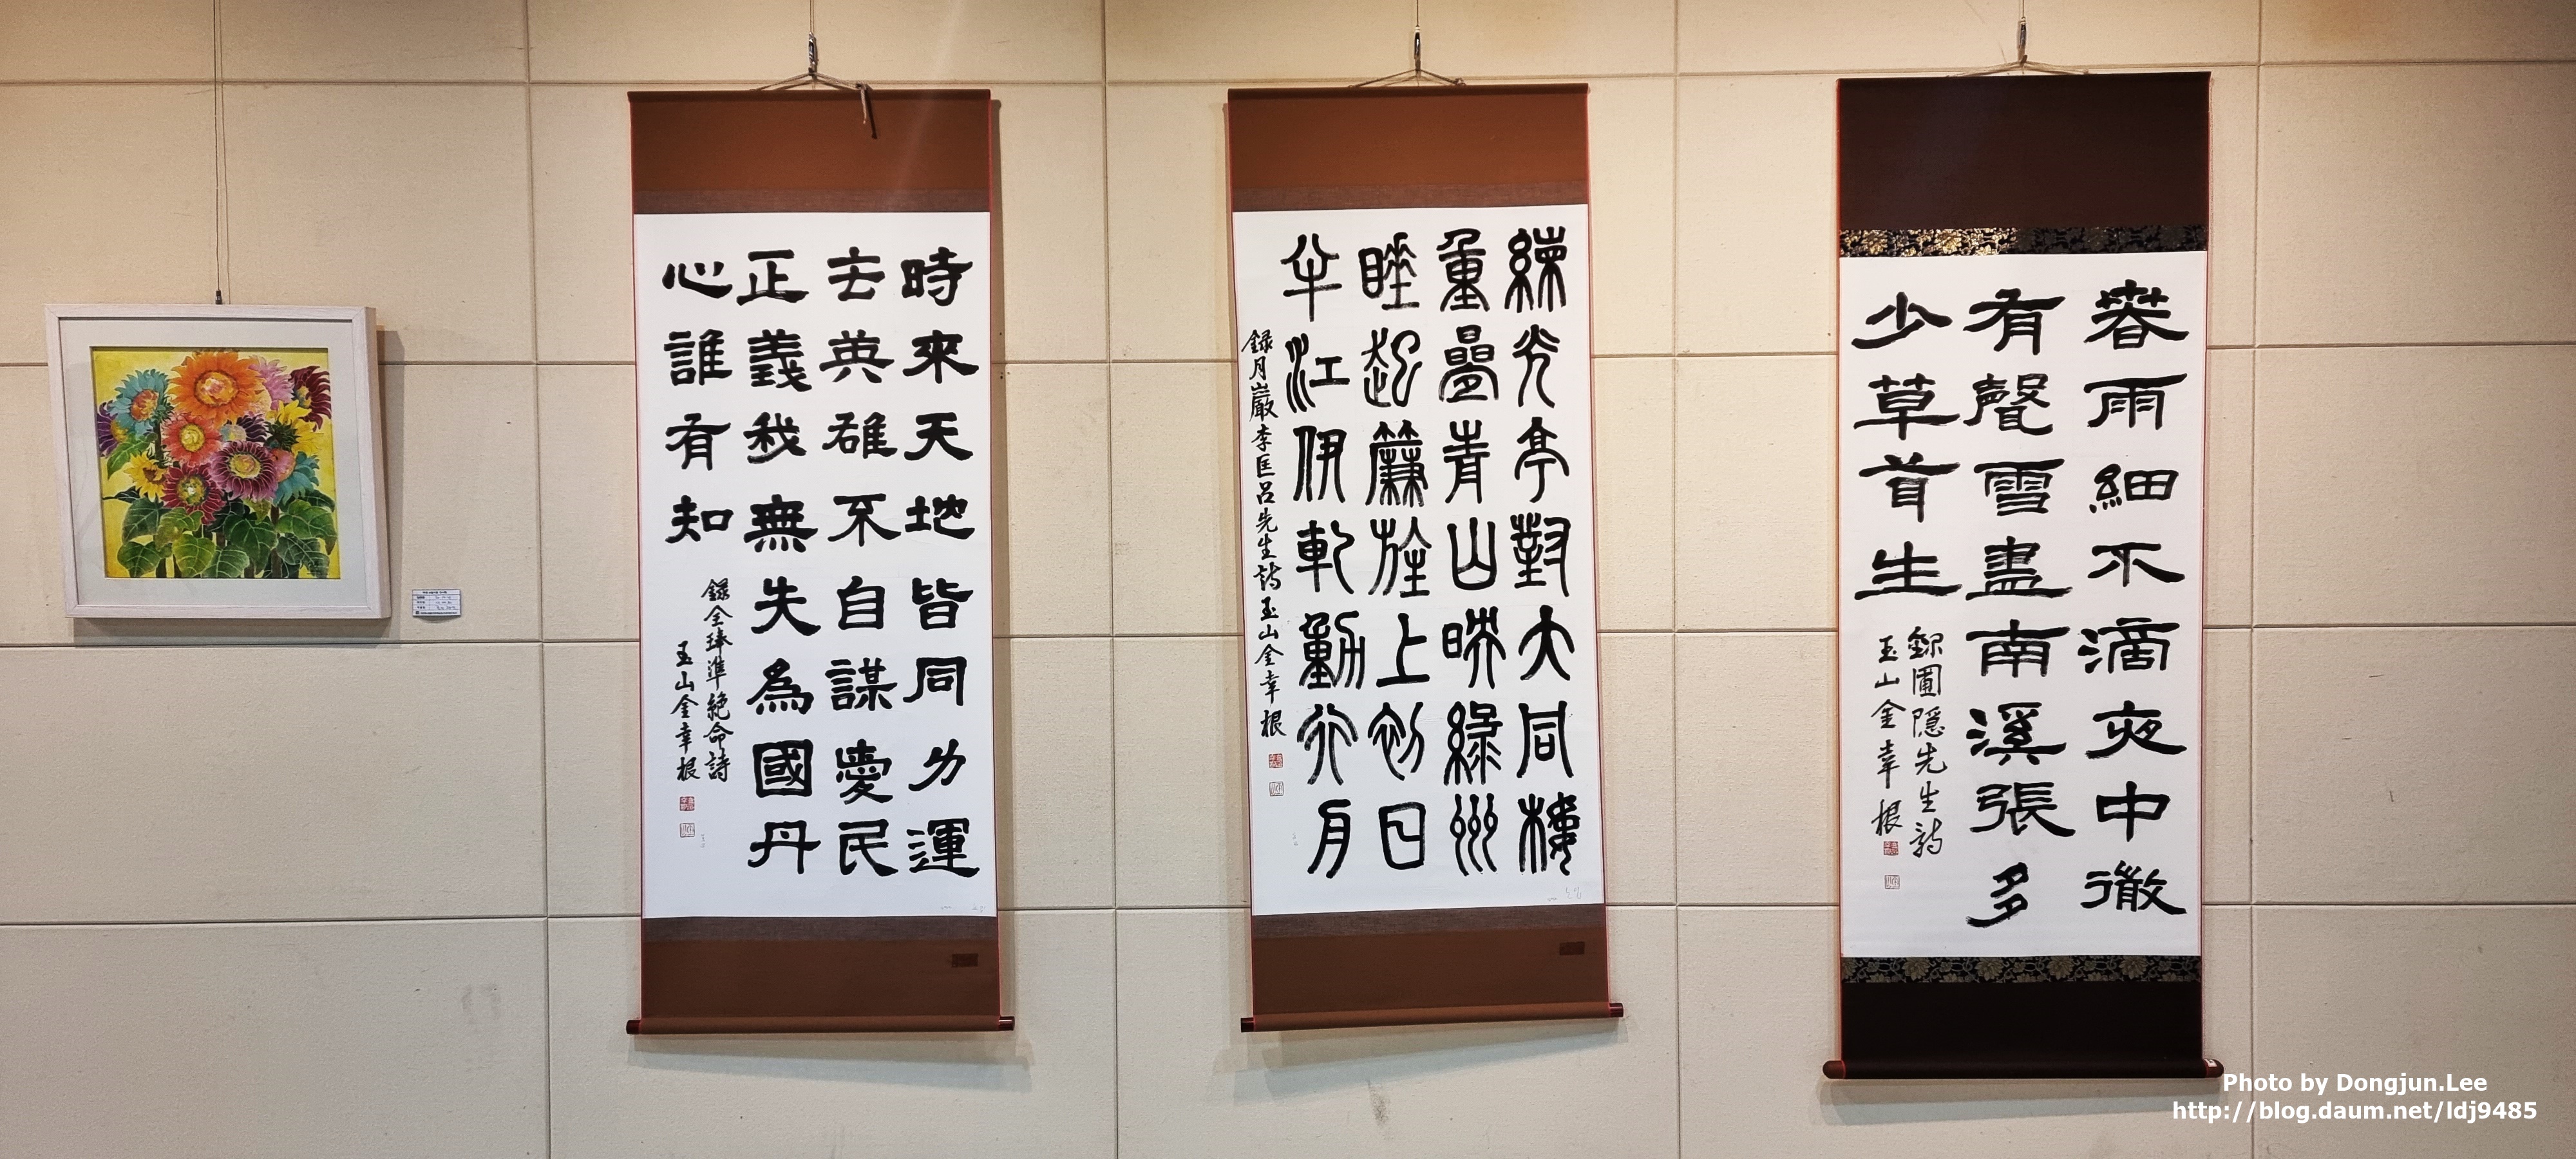 時來天地皆同力運
去英雄不自謀愛民
正義我無失為國丹
心誰有知
錄全琫準絶命詩
玉山金幸根
練光亭對大同樓
重疊青山暎綠州
睡起簾旌上初日
半江伊軋動行舟
錄月巖李匡呂先生詩玉山金幸根
春雨細不滴夜中微
有聲雪盡南溪張多
少草首生
錄圃隱先生詩
玉山金幸根
Photo by Dongjun.Lee
http://blog.daum.net/ldj9485